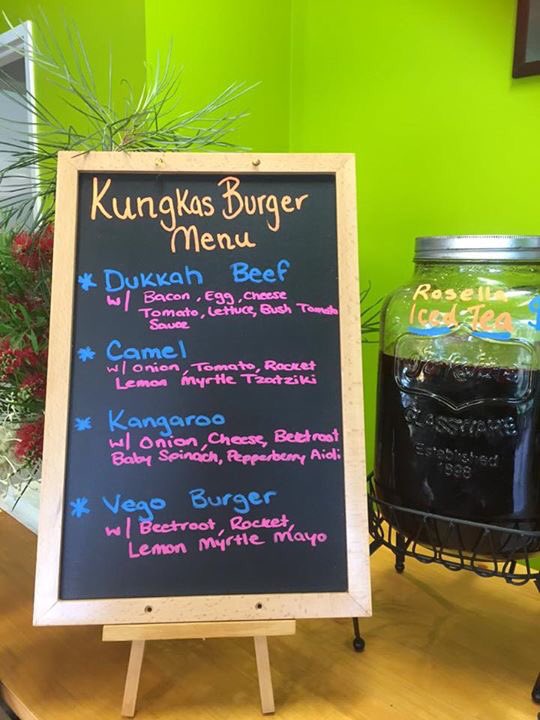 Kungkas Burger
Menu
* Dukkah Beef
w/ Bacon, Egg, Cheese
Tomato, Lettuce, Bush Tomato
Sauce
* Camel
w/ Onion, Tomato, Rocket
Lemon Myrtle Tzatziki
* Kangaroo
w/ Onion, Cheese, Beetroot
Baby Spinach, Pepperberry Aioli
* Vego Burger
w/ Beetroot, Rocket,
Lemon Myrtle Mayo
Rosella
Iced Tea
Glassware
Established